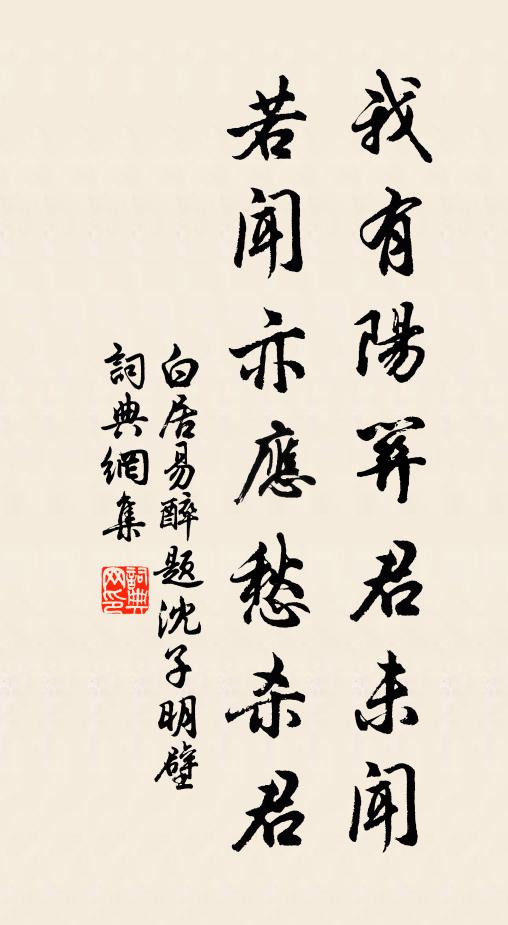 我有陽關君未聞
若聞亦應愁杀君
白居易醉題沈子明壁
詞典網集
詞典网印